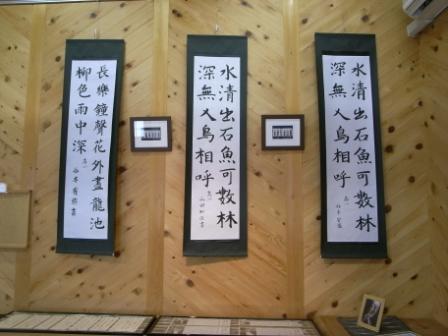 水清出石魚可數林
深無人鳥相呼
水清出石魚可數林
深無人鳥相呼
長樂鐘聲花外盡龍池
柳色雨中深